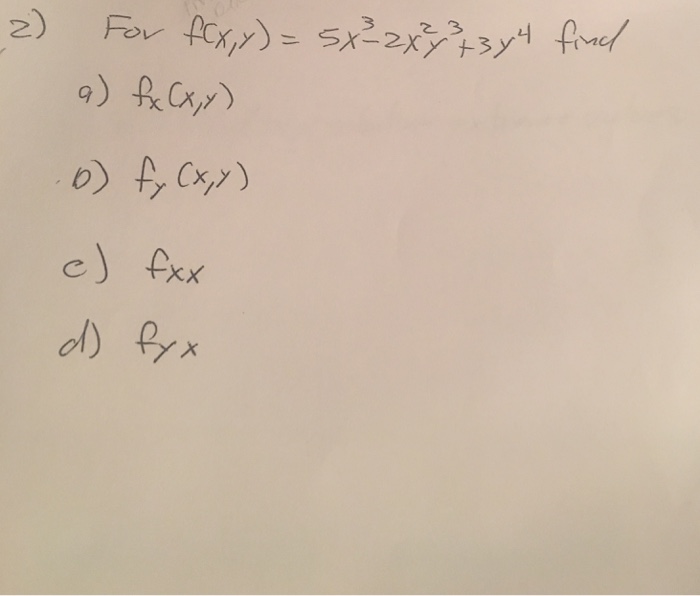 2) For f(x,y) = 5x³-2x²y³+3y⁴ find
a) fx(x,y)
b) fy(x,y)
c) fxx
d) fyx